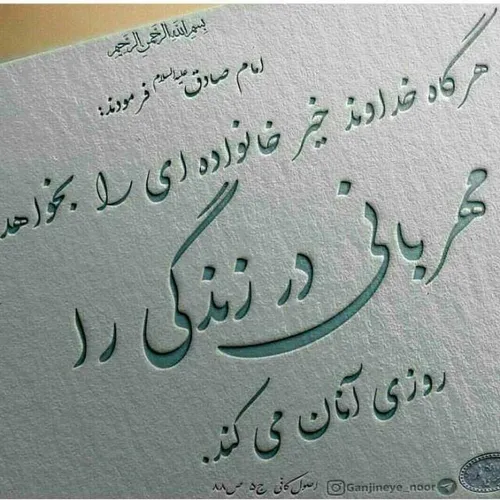 بسم الله الرحمن الرحیم
امام صادق علیه السلام فرمودند:
هرگاه خداوند خیر خانواده ای را بخواهد
مهربانی در زندگی را
روزی آنان می کند.
اصول کافی ج۵ ص۸۸
Ganjineye_noor